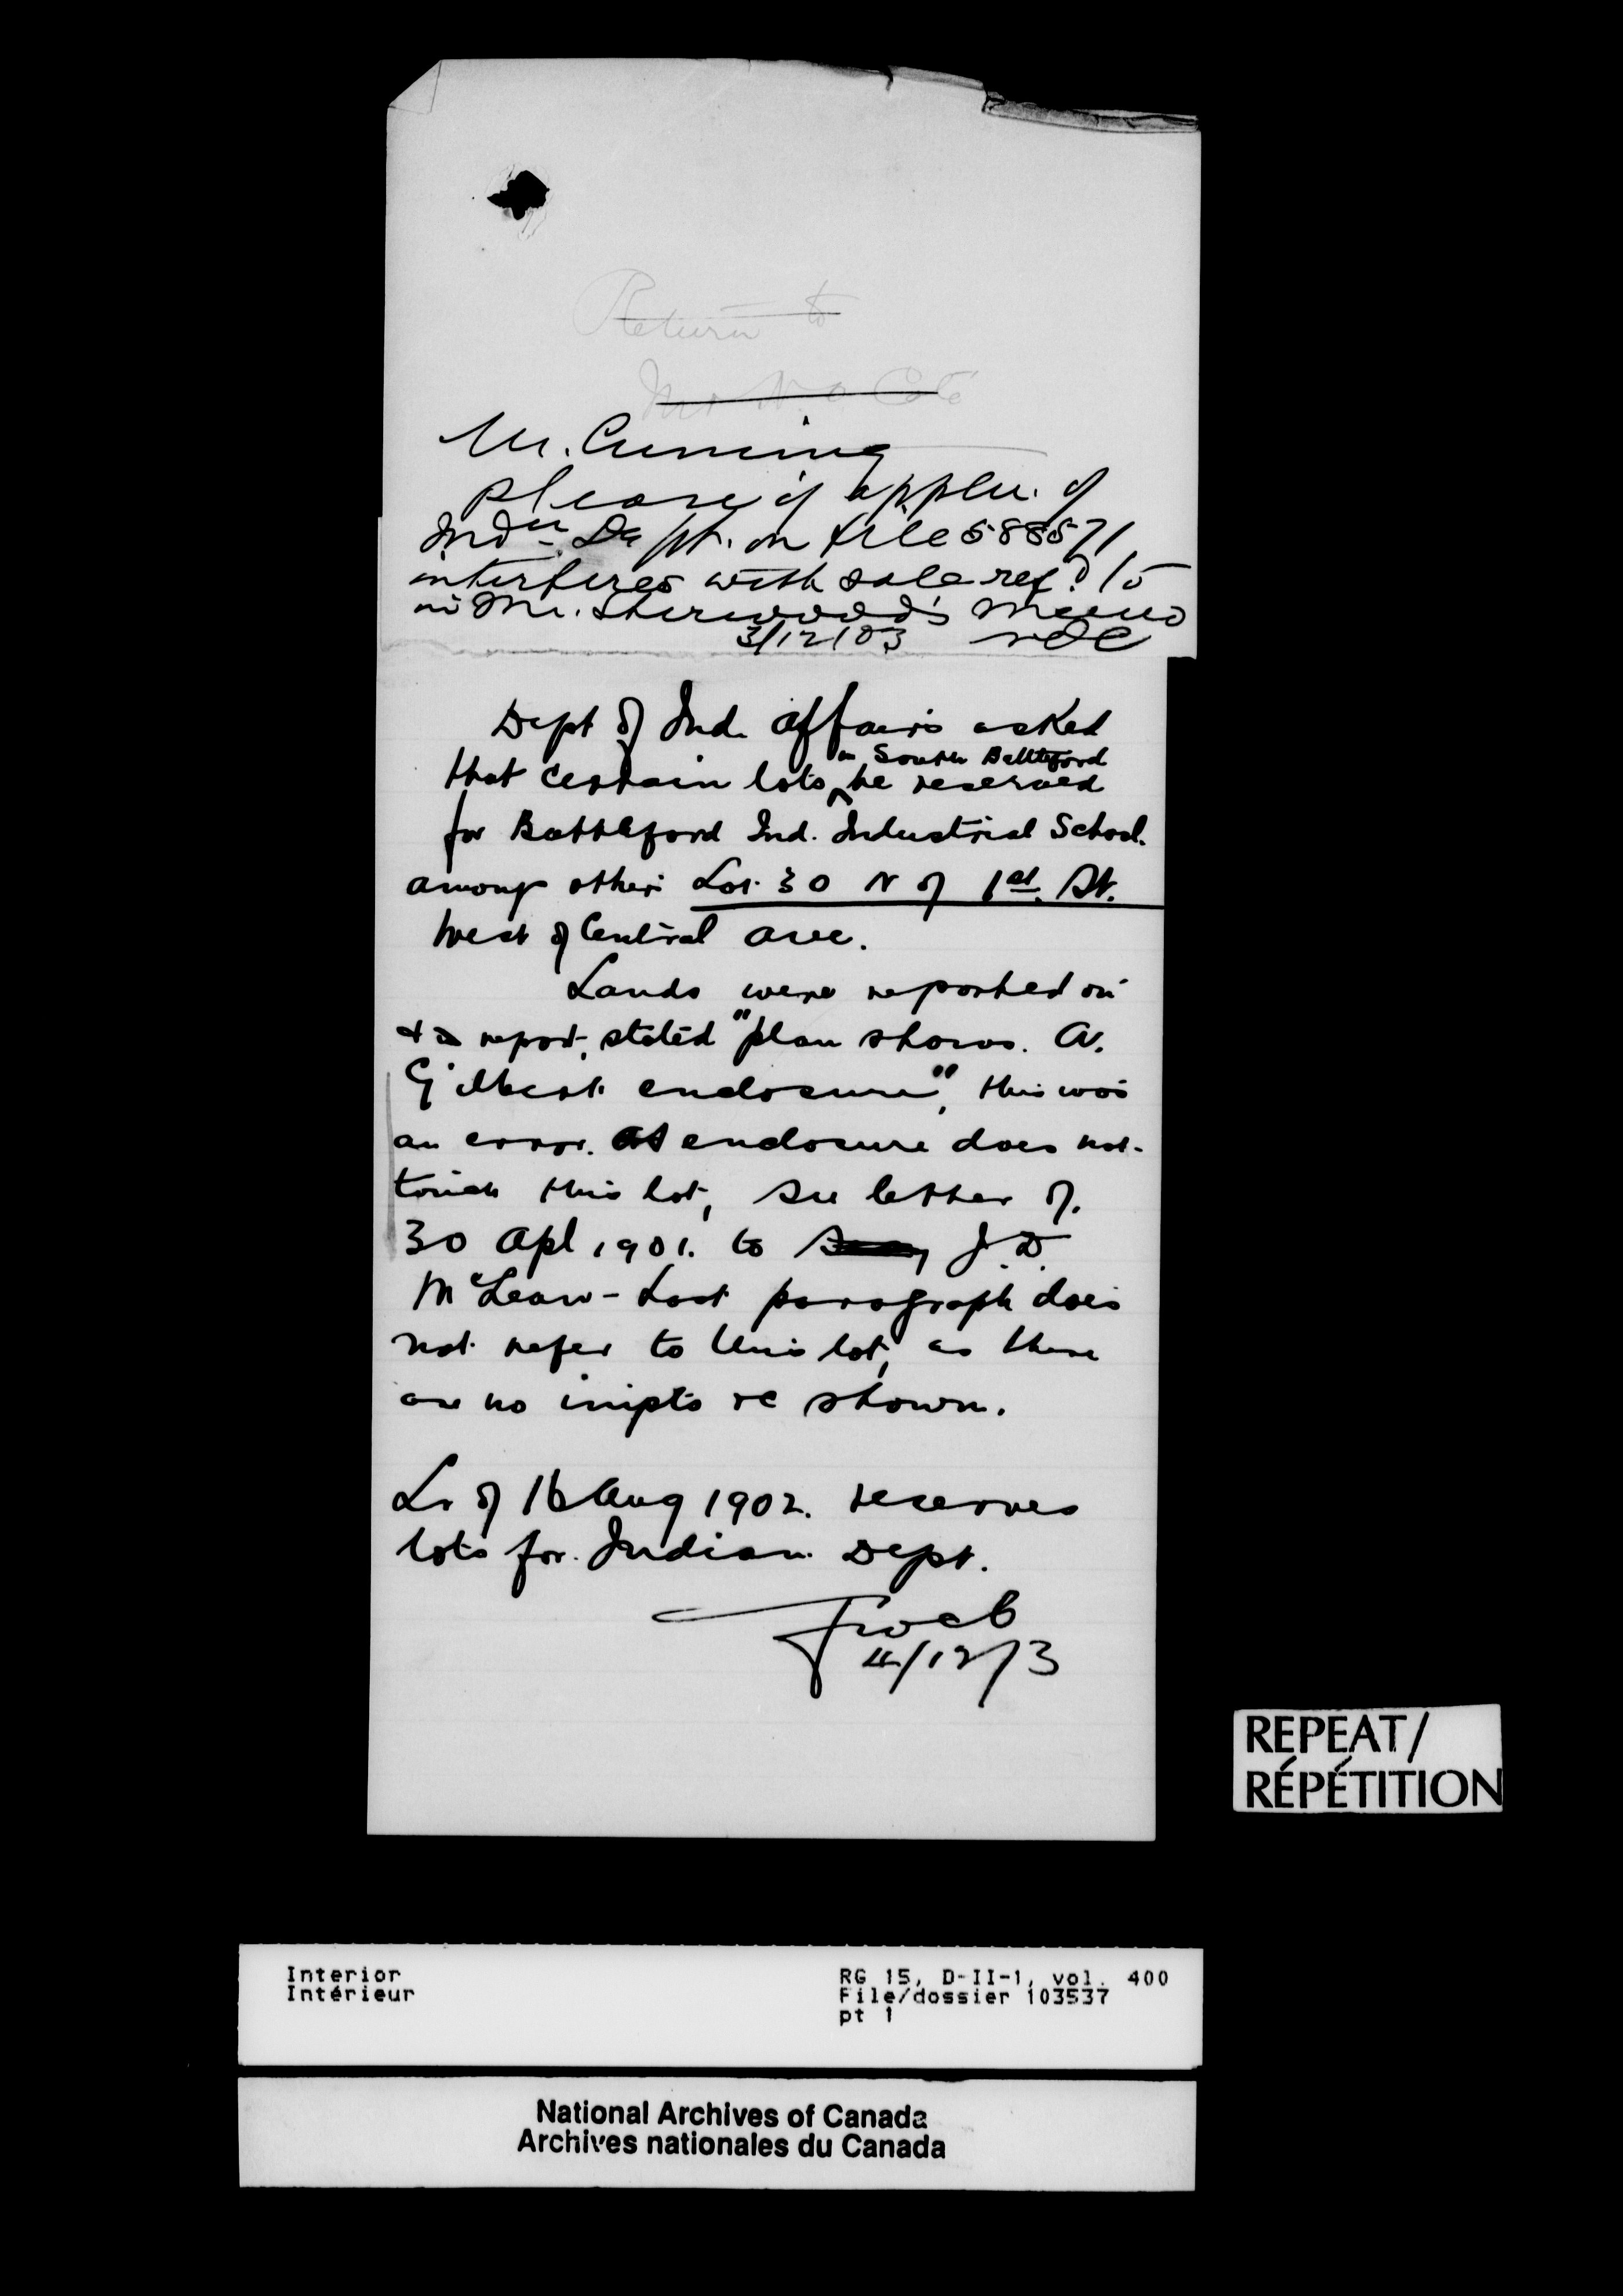 Return to
Mr N. O. Coté
Mr. Cuming
please if appln. of
Indn. Dept. on file 588571
interferes with sale refd to
in Mr. Sherwood's memo
3/12/03 NOC
Dept of Ind. Affairs asked
that certain lots in South Battleford be reserved
for Battleford Ind. Industrial School.
among others Lot 30 N of 1st. St.
West of Central Ave.
Lands were reported on
& report, stated "plan shows A.
Gilbert enclosure", this was
an error. enclosure does not
touch this lot, see letter of.
30 Apl 1901. to J. D.
McLean - Last paragraph does
not refer to this lot, as there
are no impts re shown.
Lr of 16 Aug 1902. reserves
lots for Indian Dept.
4/12/3
REPEAT/
RÉPÉTITION
Interior
Intérieur
RG 15, D-II-1, vol. 400
File/dossier 103537
pt 1
National Archives of Canada
Archives nationales du Canada